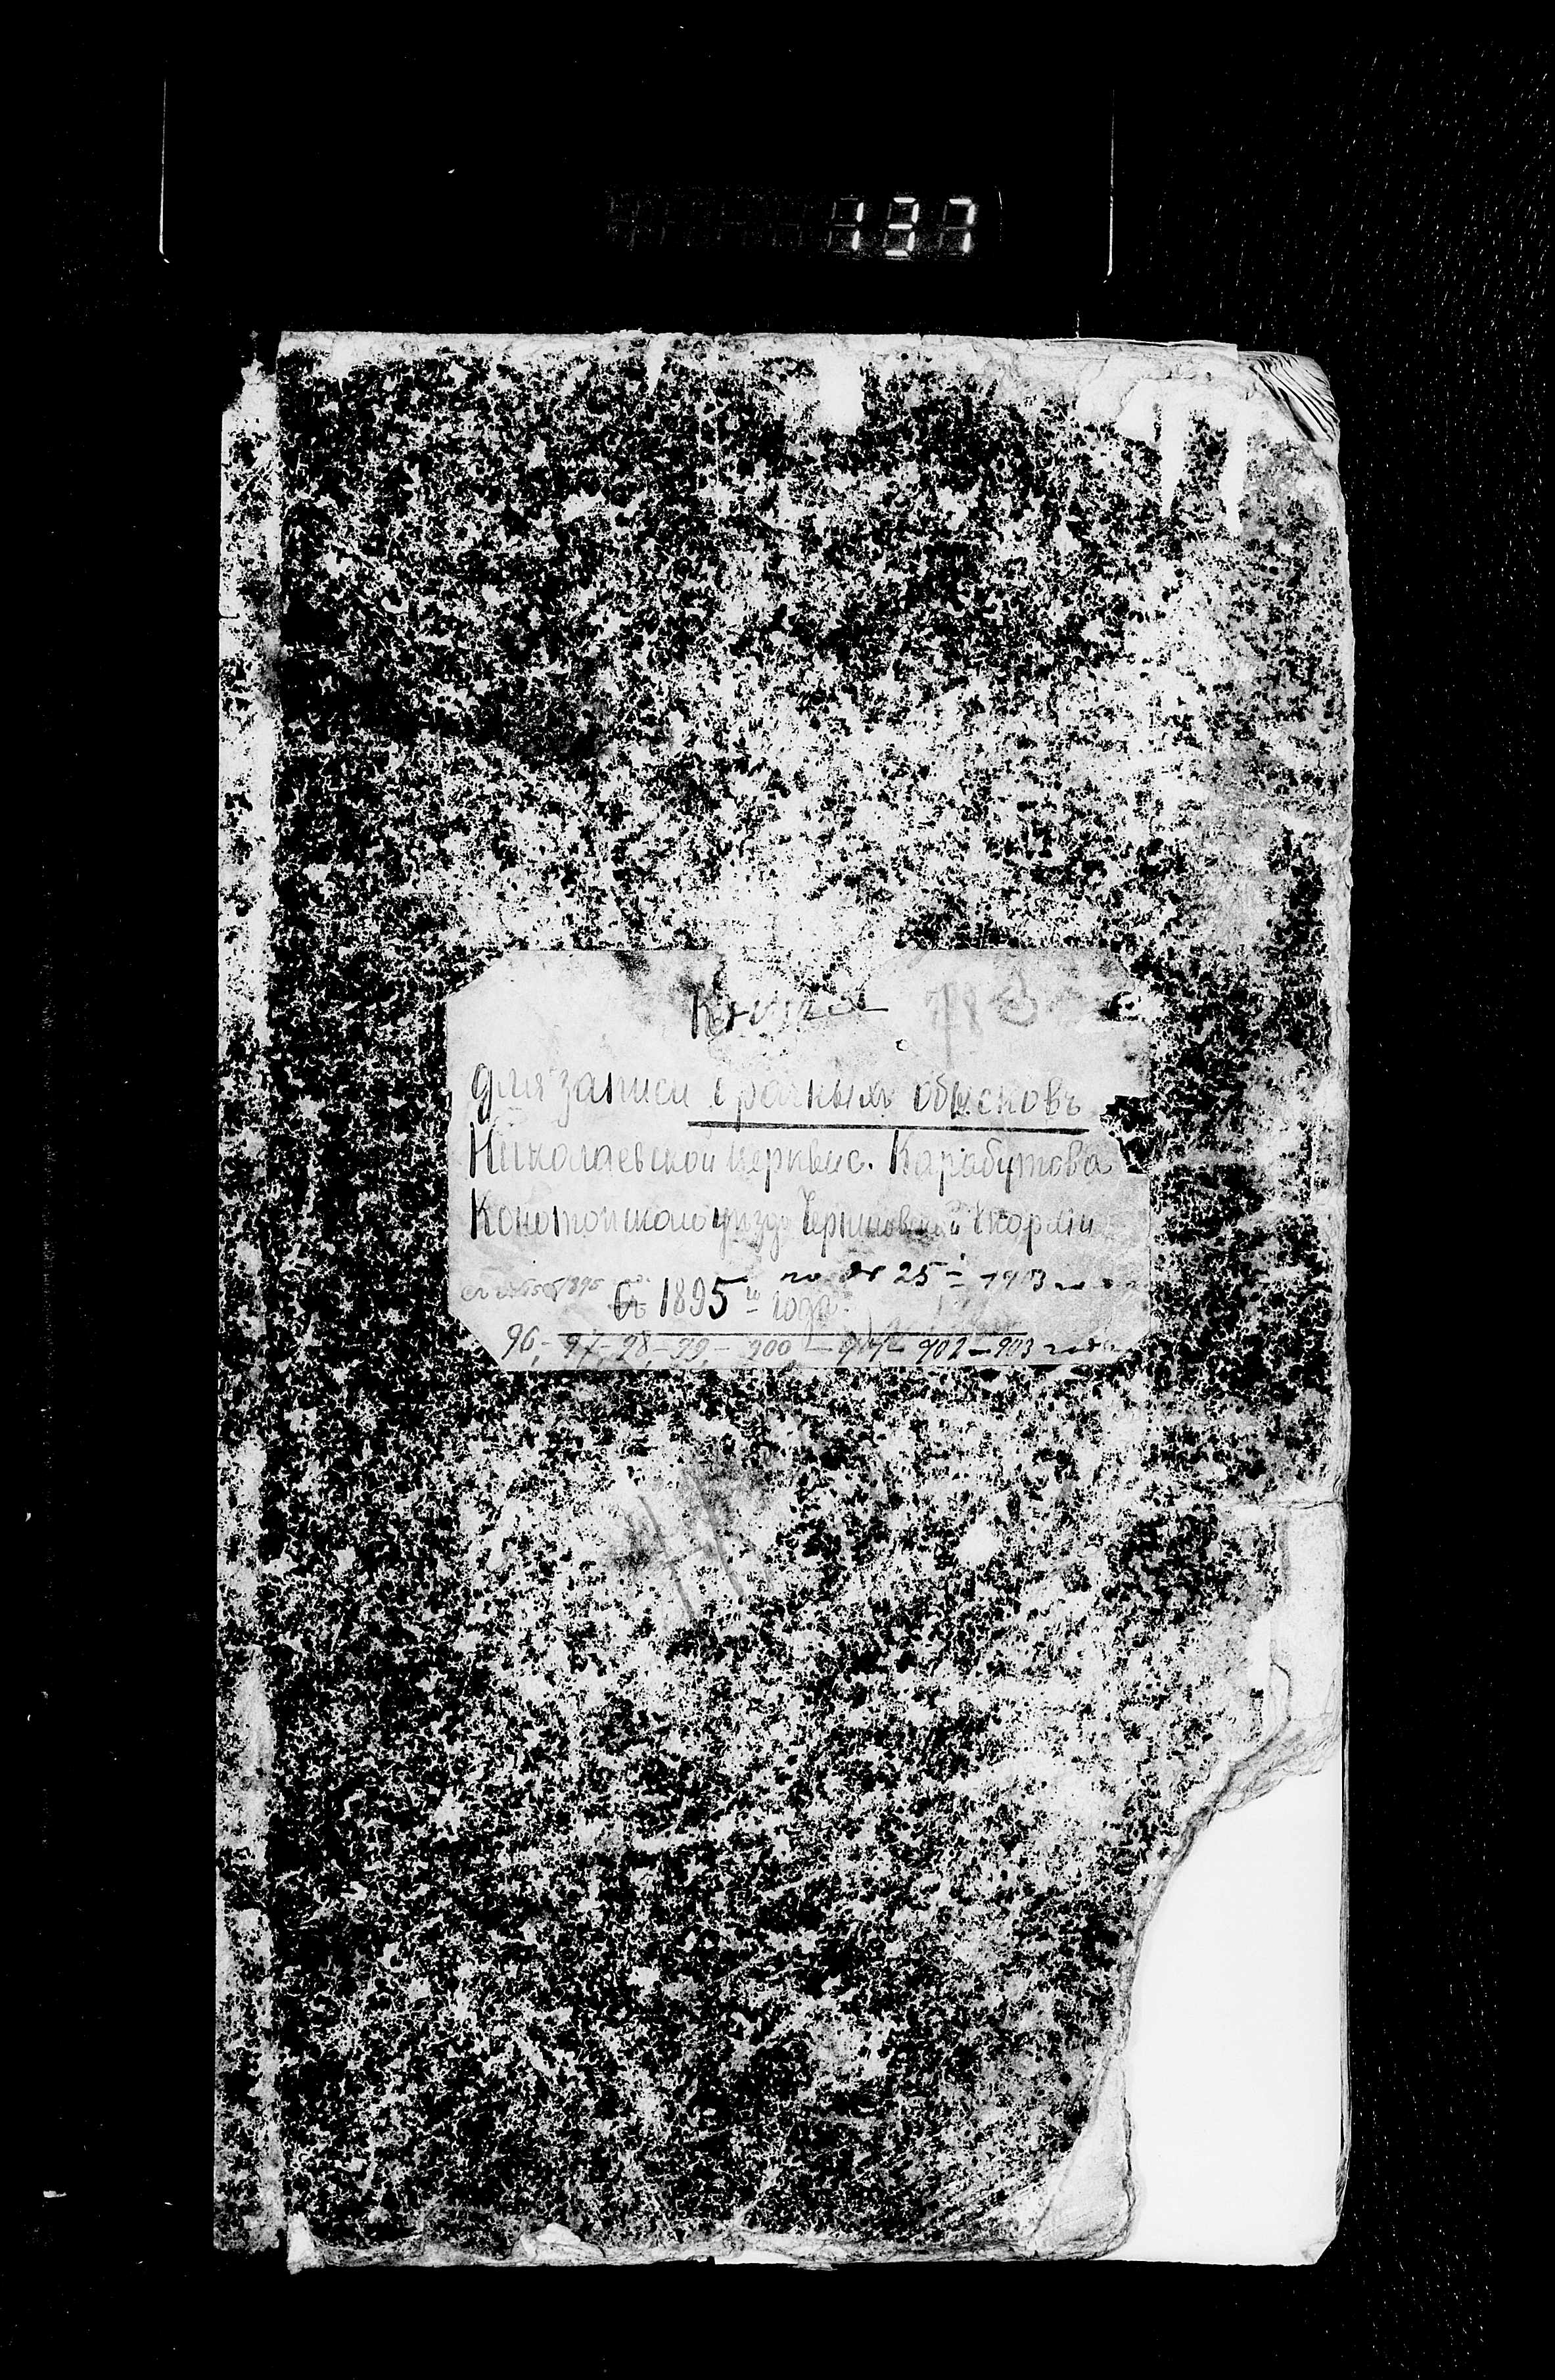 137
Книга
для записи брачныхъ обысковъ
Николаевской церкви с. Карабутова
Конотопскаго уѣзда Черниговской Епархіи
по 25 1903
Съ 1895 го года.
96, - 97 - 98, - 99, - 900, - 901 - 902 - 903 года